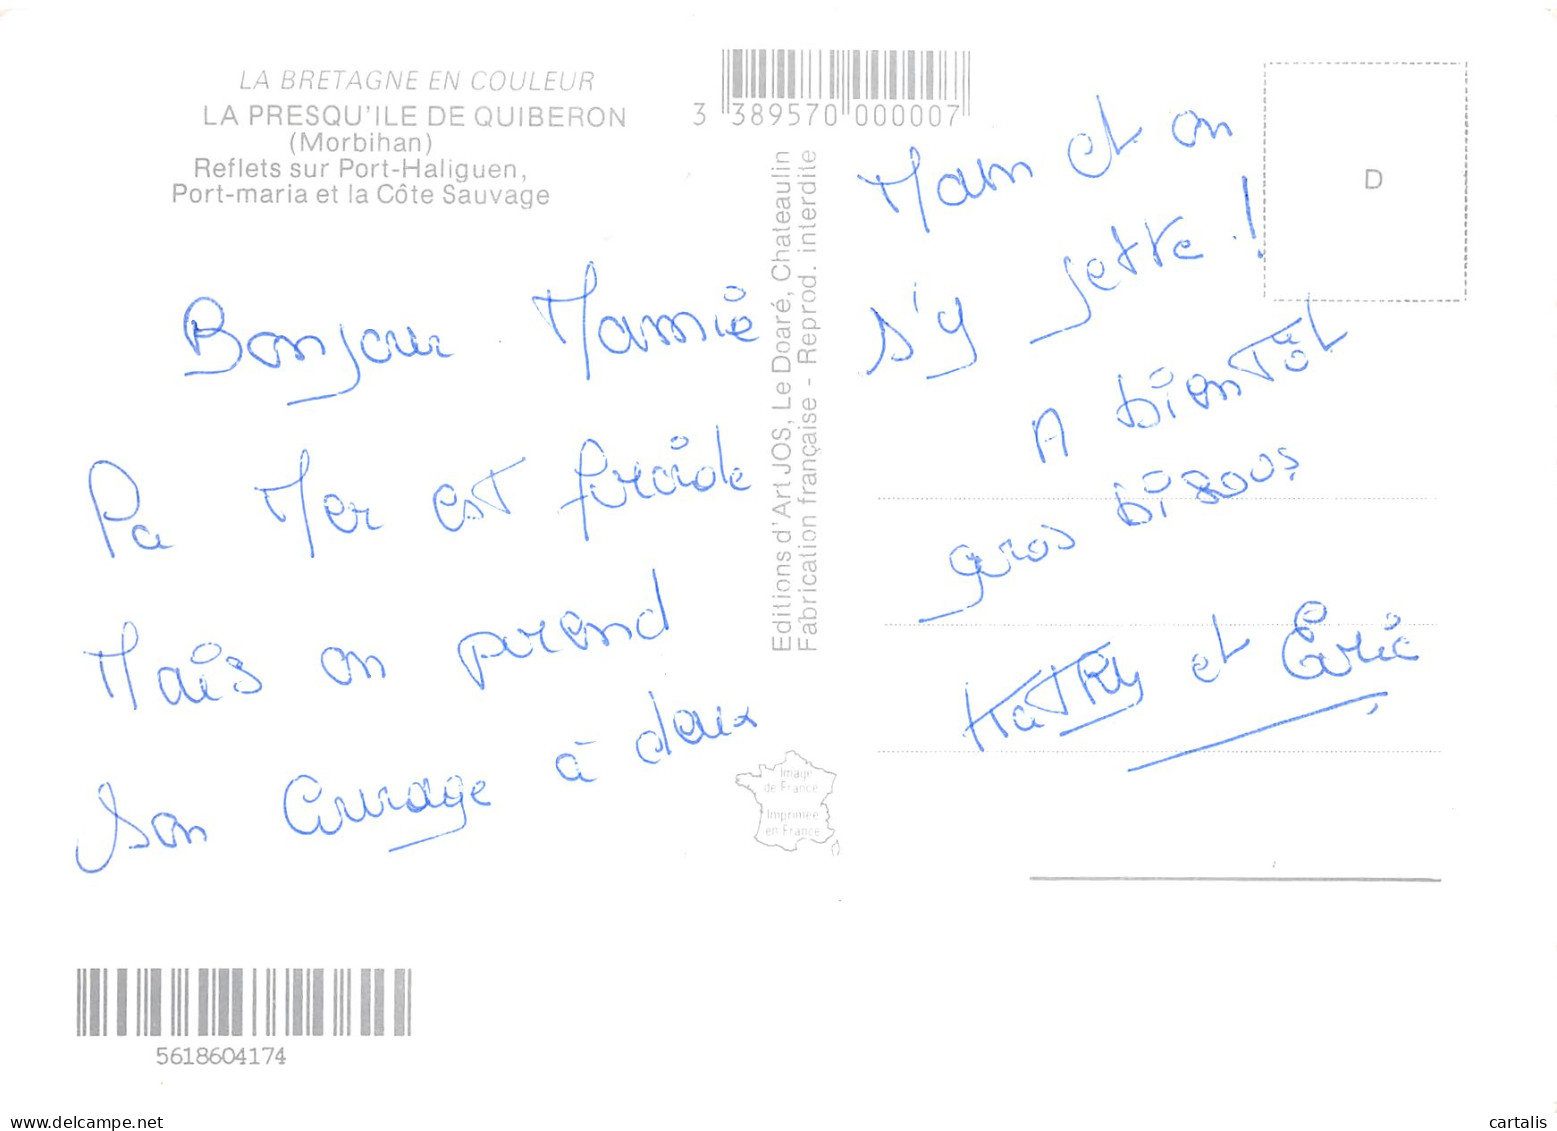 LA BRETAGNE EN COULEUR
LA PRESQU'ILE DE QUIBERON
(Morbihan)
Reflets sur Port-Haliguen,
Port-maria et la Côte Sauvage
3 389570 000007
Editions d'Art JOS, Le Doaré, Chateaulin
Fabrication française - Reprod. interdite
D
Bonjour Mamie
La Mer est froide
Mais on prend
son courage à deux
Main et on
s'y jette !
A bientôt
gros bisous
Katky et Eric
Image
de France
Imprimée
en France
5618604174
delcampe.net
cartalis